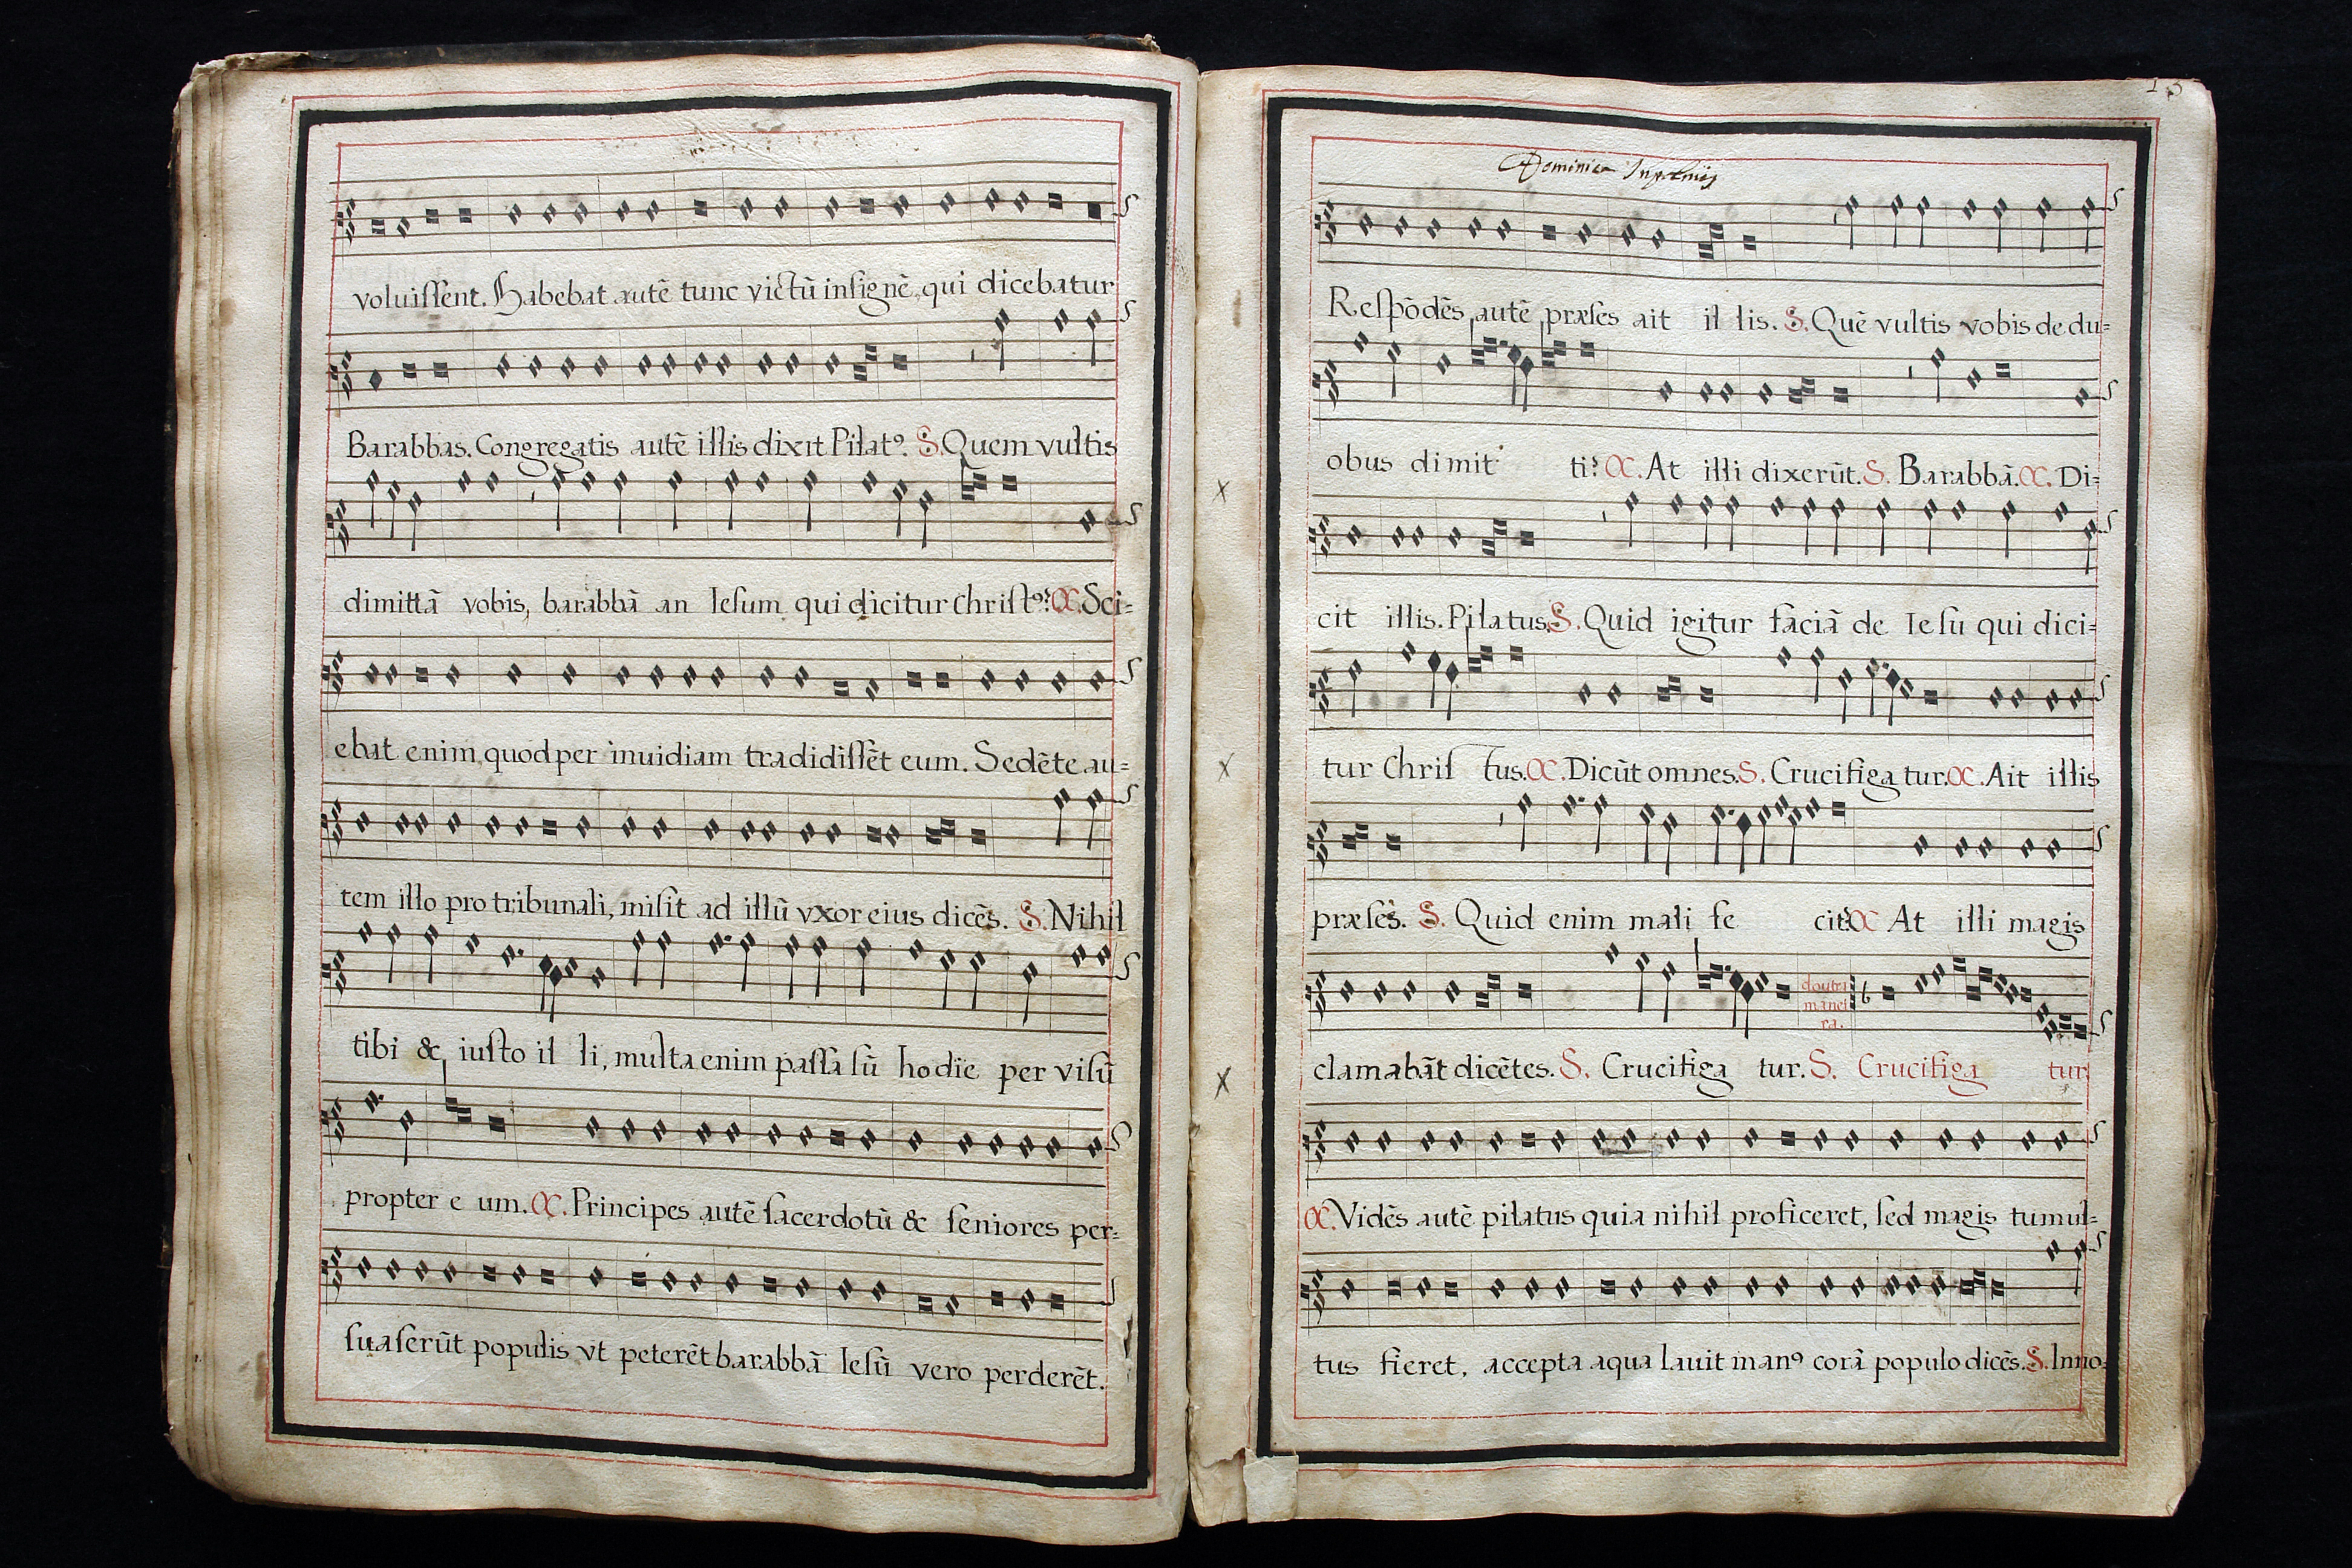 voluiſſent. Habebat autē tunc victū inſignē, qui dicebatur
Barabbas. Congregatis autē illis dixit Pilatꝰ. S. Quem vultis
dimittā vobis, barabbā an Ieſum qui dicitur Chriſtꝰ? C. Sci=
ebat enim, quod per inuidiam tradidiſſēt eum. Sedēte au=
tem illo pro tribunali, miſit ad illū vxor eius dicēs. S. Nihil
tibi & iuſto il li, multa enim paſſa ſū hodie per viſū
propter e um. C. Principes autē ſacerdotū & ſeniores per=
ſuaſerūt populis vt peterēt barabbā Ieſū vero perderēt.
13
Dominica In palmis
Reſpōdēs autē præſes ait il lis. S. Quē vultis vobis de du=
obus dimit ti? C. At illi dixerūt. S. Barabbā. C. Di=
cit illis. Pilatus. S. Quid igitur faciā de Ieſu qui dici=
tur Chriſ tus. C. Dicūt omnes. S. Crucifiga tur. C. Ait illis
præſes. S. Quid enim mali fe cit? C At illi magis
doutra
manei
ra.
clamabāt dicētes. S. Crucifiga tur. S. Crucifiga tur
C. Vidēs autē pilatus quia nihil proficeret, ſed magis tumul=
tus fieret, accepta aqua lauit manꝰ corā populo dicēs. S. Inno=